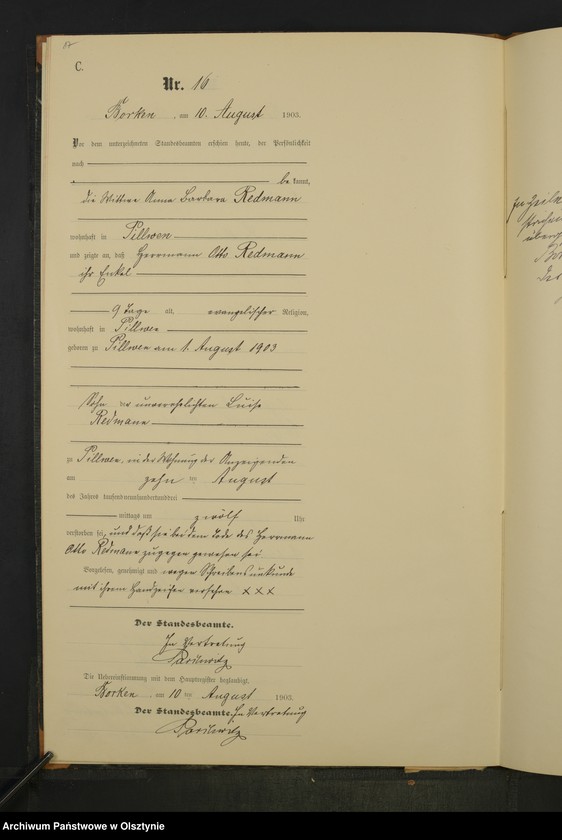 C.
Nr. 16
Borken, am 10. August 1903.
Vor dem unterzeichneten Standesbeamten erschien heute, der Persönlichkeit
nach
be kannt,
die Wittwe Anna Barbara Redmann
wohnhaft in Pillwen
und zeigte an, daß Herrmann Otto Redmann
ihr Enkel
9 Tage alt, evangelischer Religion,
wohnhaft in Pillwen
geboren zu Pillwen am 1. August 1903
Sohn der unverehelichten Luise
Redmann
zu Pillwen, in der Wohnung der Anzeigenden
am zehn ten August
des Jahres tausendneunhundertdrei
mittags um zwölf Uhr
verstorben sei, und daß sie bei dem Tode des Herrmann
Otto Redmann zugegen gewesen sei.
Vorgelesen, genehmigt und wegen Schreibensunkunde
mit ihrem Handzeichen versehen XXX
Der Standesbeamte.
In Vertretung
Die Uebereinstimmung mit dem Hauptregister beglaubigt.
Borken, am 10 ten August 1903.
Der Standesbeamte. In Vertretung
Archiwum Państwowe w Olsztynie